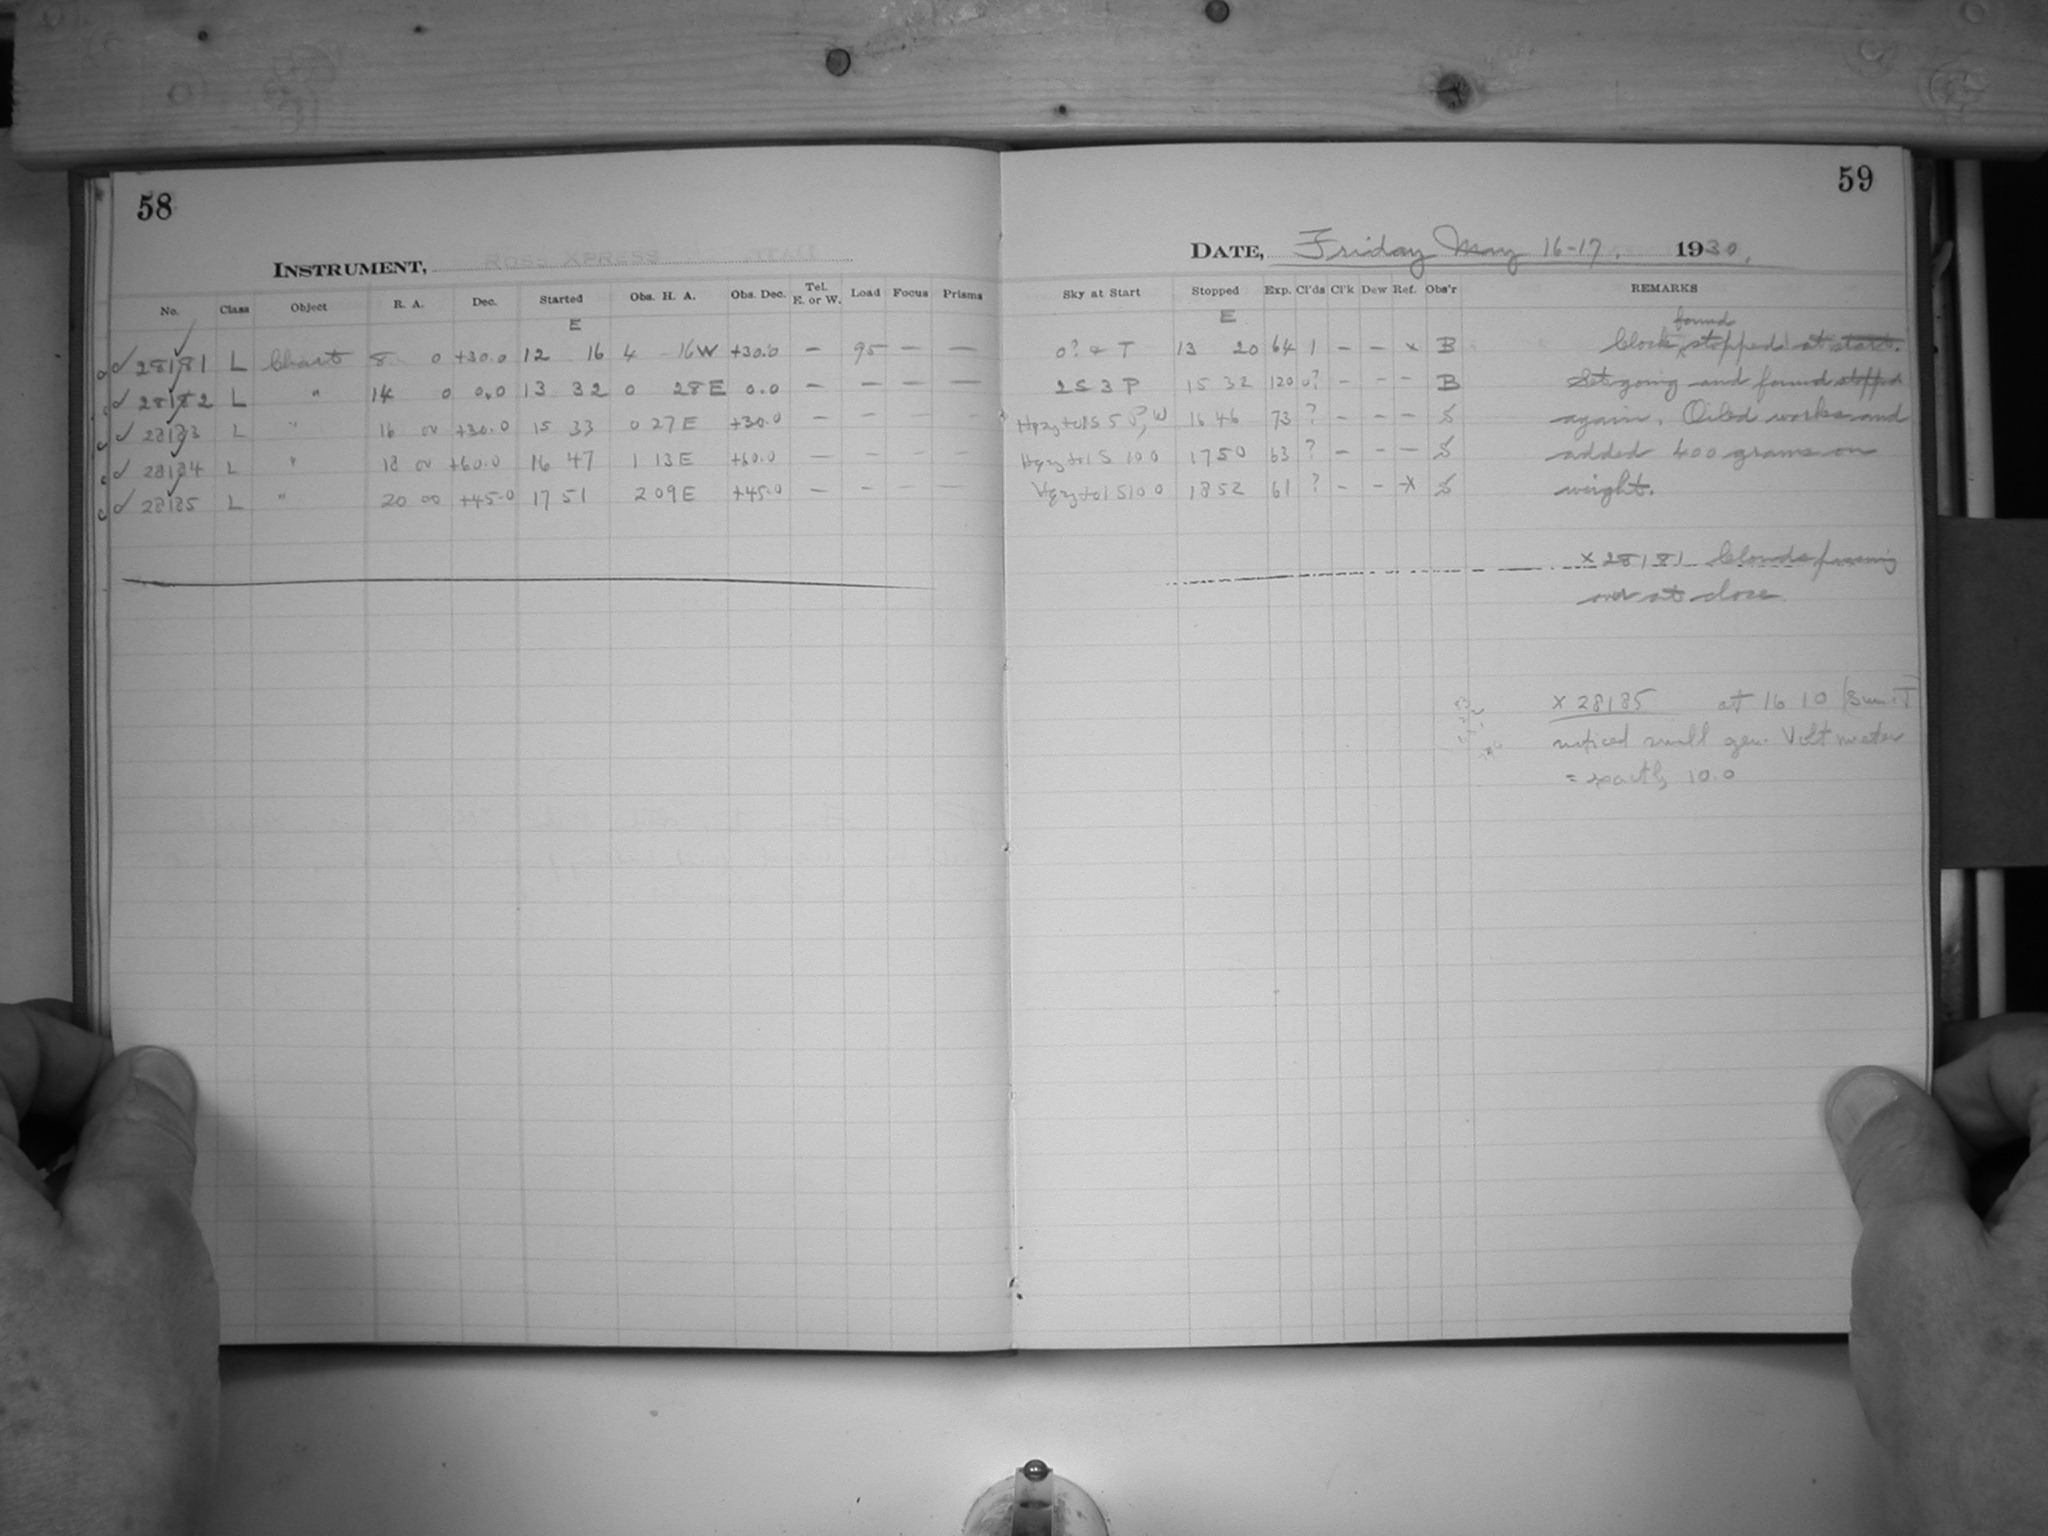 58
INSTRUMENT, ROSS XPRESS
No. Class Object R. A. Dec. Started Obs. H. A. Obs. Dec. Tel. E. or W. Load Focus Prisms
E
28181 L Chart 8 0 +30.0 12 16 4 16 W +30.0 — 95 — —
28182 L " 14 0 0.0 13 32 0 28 E 0.0 — — — —
28183 L " 16 00 +30.0 15 33 0 27 E +30.0 — — — —
28184 L " 18 00 +60.0 16 47 1 13 E +60.0 — — — —
28185 L " 20 00 +45.0 17 51 2 09 E +45.0 — — — —
59
DATE, Friday May 16-17, 1930.
Sky at Start Stopped Exp. Cl'ds Cl'k Dew Ref. Obs'r REMARKS
E
0? 4 T 13 20 64 1 — — x B
2 S 3 P 15 32 120 0? — — — B
S 5 P, W 16 46 73 ? — — — S
S 10 0 17 50 63 ? — — — S
S 10 0 18 52 61 ? — — x S
found
Clock stopped at start.
Set going and found stopped
again. Oiled works and
added 400 grams on
weight.
x 28181 Clouds passing
over at close
x 28185 at 16 10
noticed small gen. Volt meter
= exactly 10.0